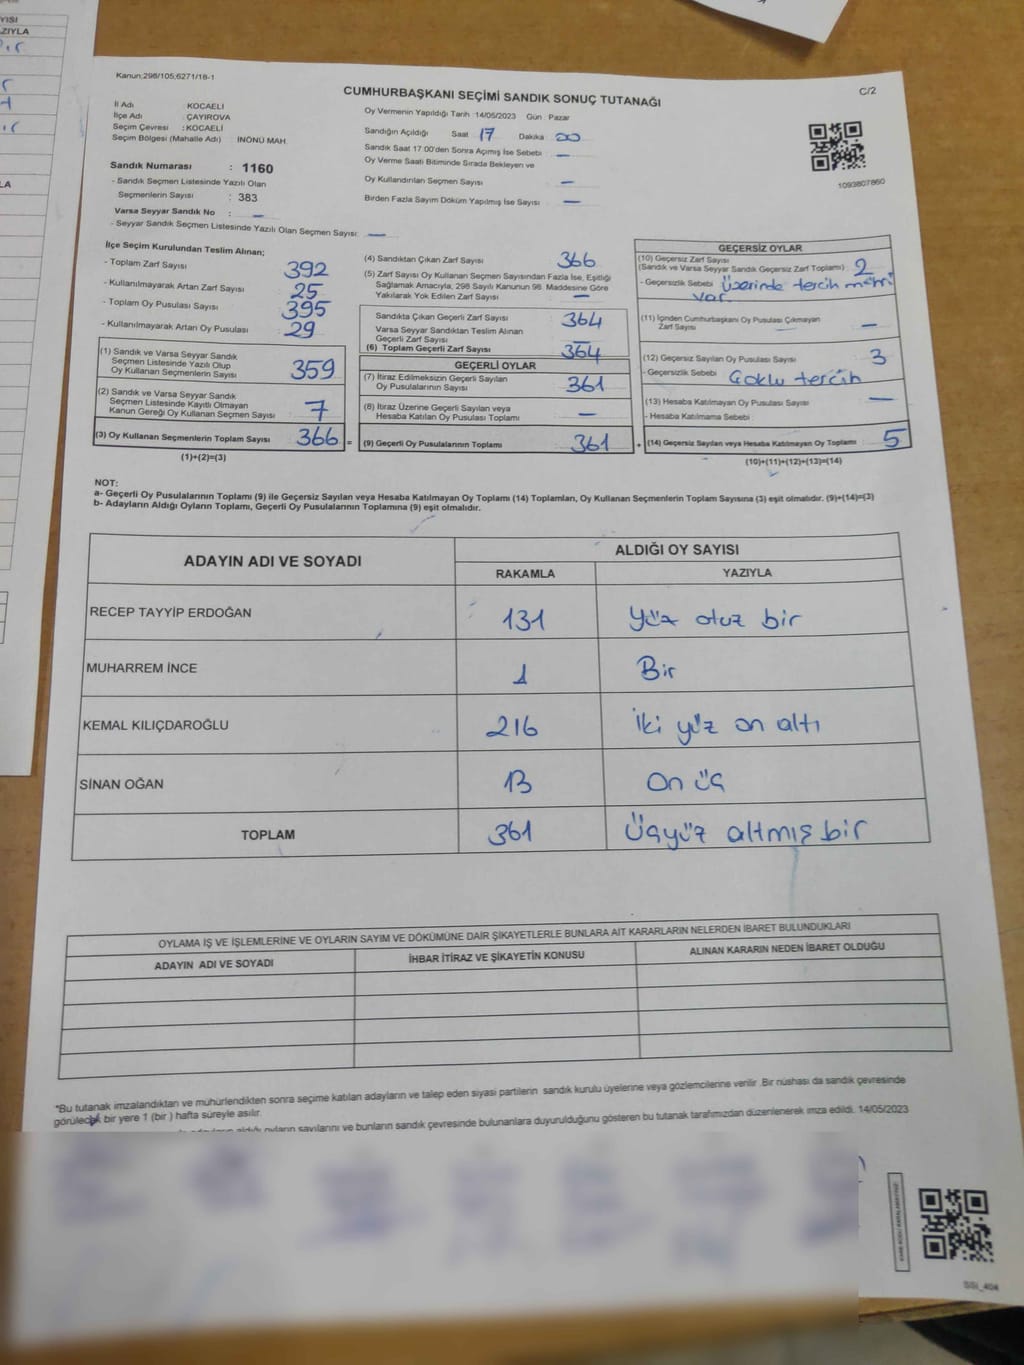 YISI
ZIYLA
LA
Kanun;298/105;6271/18-1
C/2
CUMHURBAŞKANI SEÇİMİ SANDIK SONUÇ TUTANAĞI
İl Adı : KOCAELİ
İlçe Adı : ÇAYIROVA
Seçim Çevresi : KOCAELİ
Seçim Bölgesi (Mahalle Adı) : İNÖNÜ MAH.
Sandık Numarası : 1160
- Sandık Seçmen Listesinde Yazılı Olan
Seçmenlerin Sayısı : 383
Varsa Seyyar Sandık No : —
- Seyyar Sandık Seçmen Listesinde Yazılı Olan Seçmen Sayısı: —
Oy Vermenin Yapıldığı Tarih :14/05/2023 Gün : Pazar
Sandığın Açıldığı Saat 17 Dakika 00
Sandık Saat 17:00'den Sonra Açımış İse Sebebi —
Oy Verme Saati Bitiminde Sırada Bekleyen ve
Oy Kullandırılan Seçmen Sayısı —
Birden Fazla Sayım Döküm Yapılmış İse Sayısı —
1093807860
İlçe Seçim Kurulundan Teslim Alınan;
- Toplam Zarf Sayısı 392
- Kullanılmayarak Artan Zarf Sayısı 25
- Toplam Oy Pusulası Sayısı 395
- Kullanılmayarak Artan Oy Pusulası 29
(1) Sandık ve Varsa Seyyar Sandık
Seçmen Listesinde Yazılı Olup
Oy Kullanan Seçmenlerin Sayısı 359
(2) Sandık ve Varsa Seyyar Sandık
Seçmen Listesinde Kayıtlı Olmayan
Kanun Gereği Oy Kullanan Seçmen Sayısı 7
(3) Oy Kullanan Seçmenlerin Toplam Sayısı 366 =
(1)+(2)=(3)
(4) Sandıktan Çıkan Zarf Sayısı 366
(5) Zarf Sayısı Oy Kullanan Seçmen Sayısından Fazla İse, Eşitliği
Sağlamak Amacıyla, 298 Sayılı Kanunun 98. Maddesine Göre
Yakılarak Yok Edilen Zarf Sayısı —
Sandıkta Çıkan Geçerli Zarf Sayısı 364
Varsa Seyyar Sandıktan Teslim Alınan
Geçerli Zarf Sayısı —
(6) Toplam Geçerli Zarf Sayısı 364
GEÇERLİ OYLAR
(7) İtiraz Edilmeksizin Geçerli Sayılan
Oy Pusulalarının Sayısı 361
(8) İtiraz Üzerine Geçerli Sayılan veya
Hesaba Katılan Oy Pusulası Toplamı —
(9) Geçerli Oy Pusulalarının Toplamı 361 +
GEÇERSİZ OYLAR
(10) Geçersiz Zarf Sayısı
(Sandık ve Varsa Seyyar Sandık Geçersiz Zarf Toplamı) 2
- Geçersizlik Sebebi Üzerinde tercih mührü
var.
(11) İçinden Cumhurbaşkanı Oy Pusulası Çıkmayan
Zarf Sayısı —
(12) Geçersiz Sayılan Oy Pusulası Sayısı 3
- Geçersizlik Sebebi Çoklu tercih
(13) Hesaba Katılmayan Oy Pusulası Sayısı —
- Hesaba Katılmama Sebebi
(14) Geçersiz Sayılan veya Hesaba Katılmayan Oy Toplamı 5
(10)+(11)+(12)+(13)=(14)
NOT:
a- Geçerli Oy Pusulalarının Toplamı (9) ile Geçersiz Sayılan veya Hesaba Katılmayan Oy Toplamı (14) Toplamları, Oy Kullanan Seçmenlerin Toplam Sayısına (3) eşit olmalıdır. (9)+(14)=(3)
b- Adayların Aldığı Oyların Toplamı, Geçerli Oy Pusulalarının Toplamına (9) eşit olmalıdır.
ADAYIN ADI VE SOYADI ALDIĞI OY SAYISI
RAKAMLA YAZIYLA
RECEP TAYYİP ERDOĞAN 131 Yüz otuz bir
MUHARREM İNCE 1 Bir
KEMAL KILIÇDAROĞLU 216 İki yüz on altı
SİNAN OĞAN 13 On üç
TOPLAM 361 Üçyüz altmış bir
OYLAMA İŞ VE İŞLEMLERİNE VE OYLARIN SAYIM VE DÖKÜMÜNE DAİR ŞİKAYETLERLE BUNLARA AİT KARARLARIN NELERDEN İBARET BULUNDUKLARI
ADAYIN ADI VE SOYADI İHBAR İTİRAZ VE ŞİKAYETİN KONUSU ALINAN KARARIN NEDEN İBARET OLDUĞU
*Bu tutanak imzalandıktan ve mühürlendikten sonra seçime katılan adayların ve talep eden siyasi partilerin sandık kurulu üyelerine veya gözlemcilerine verilir .Bir nüshası da sandık çevresinde
görülecek bir yere 1 (bir ) hafta süreyle asılır.
aldığı oyların sayılarını ve bunların sandık çevresinde bulunanlara duyurulduğunu gösteren bu tutanak tarafımızdan düzenlenerek imza edildi. 14/05/2023
SSI_404